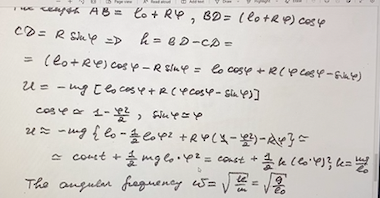 The length AB = l₀ + Rφ, BD = (l₀ + Rφ) cosφ
CD = R sinφ ⇒ h = BD - CD =
= (l₀ + Rφ) cosφ - R sinφ = l₀ cosφ + R (φ cosφ - sinφ)
U = -mg [l₀ cosφ + R (φ cosφ - sinφ)]
cosφ ≃ 1 - φ²/2, sinφ ≃ φ
U ≈ -mg { l₀ - ½ l₀φ² + Rφ (1 - φ²/2) - Rφ } ≃
≃ const + ½ mg l₀ · φ² = const + ½ k (l₀ · φ)², k = mg/l₀
The angular frequency ω = √(k/m) = √(g/l₀)